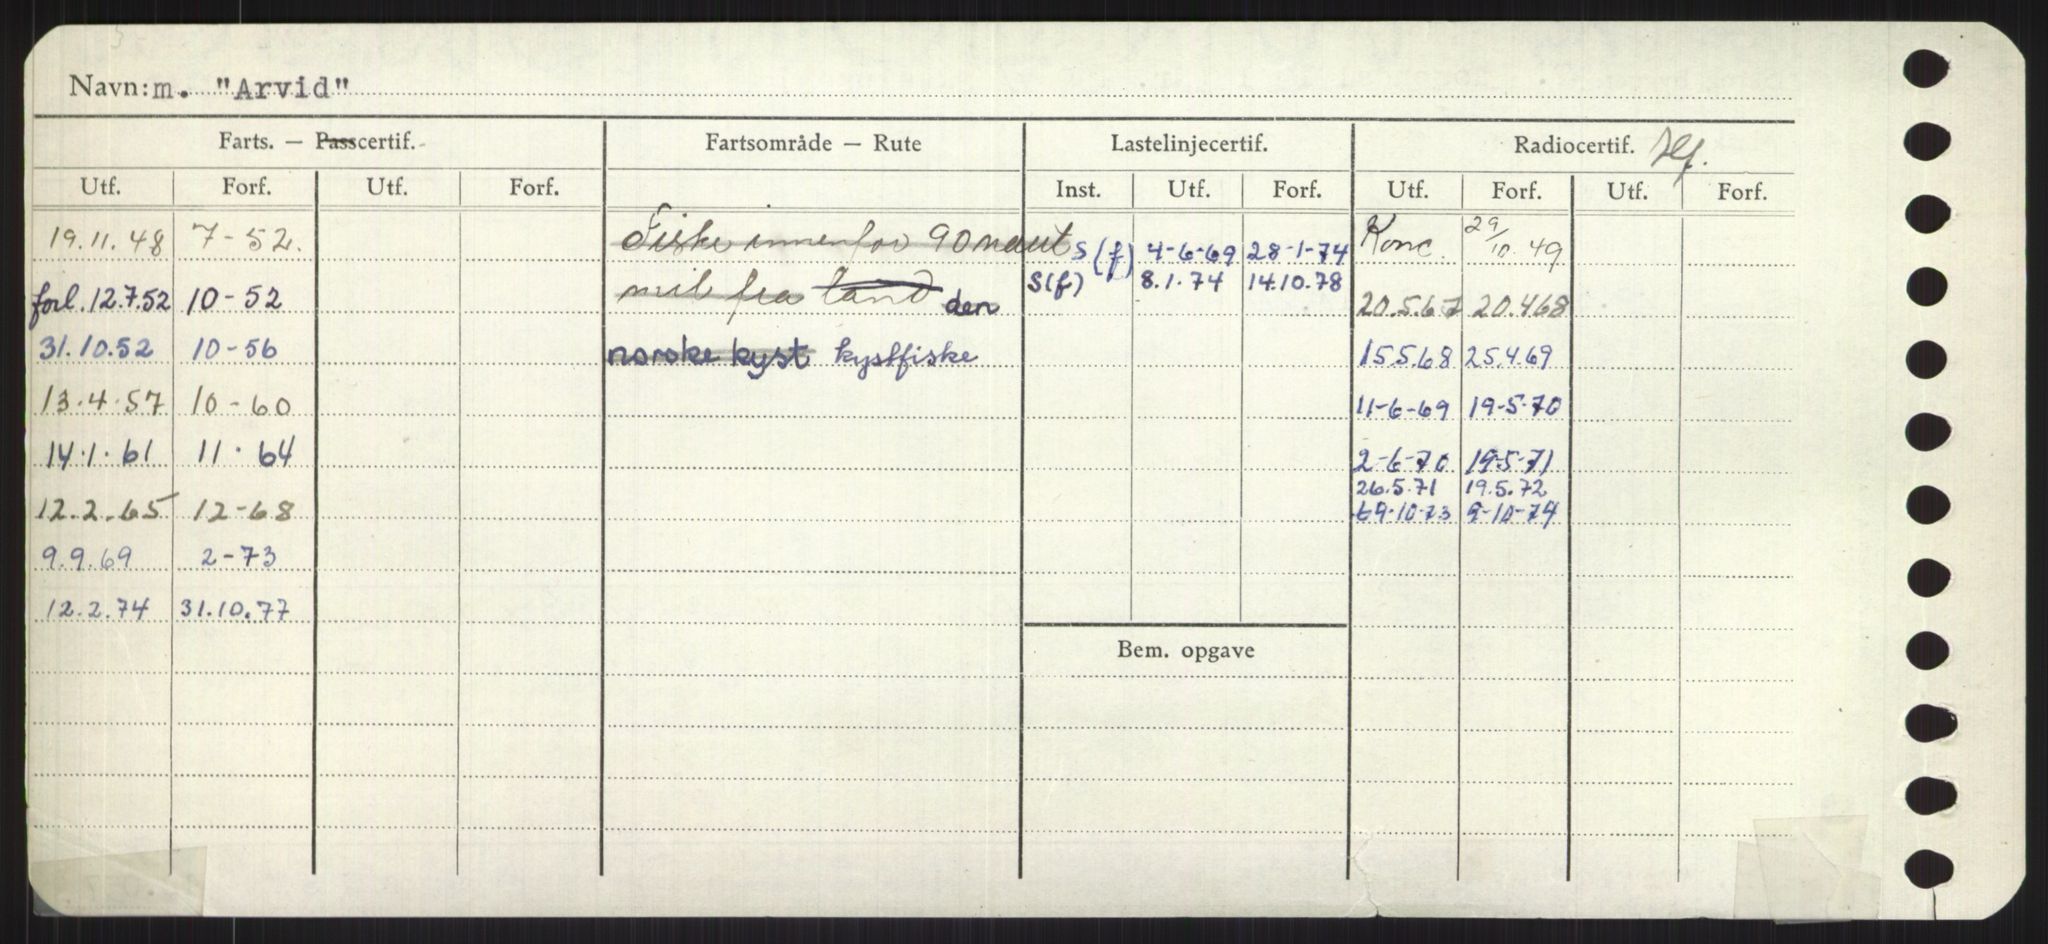 Navn: m. "Arvid"
Farts. — Passcertif. Fartsområde — Rute Lastelinjecertif. Radiocertif. Tlf.
Utf. Forf. Utf. Forf. Inst. Utf. Forf. Utf. Forf. Utf. Forf.
19.11.48 7-52. Fiske innenfor 90 naut S(f) 4-6-69 28-1-74 Konc. 29/10.49
forl. 12.7.52 10-52 mil fra land den S(f) 8.1.74 14.10.78 20.5.67 20.4.68
31.10.52 10-56 norske kyst kystfiske 15.5.68 25.4.69
13.4.57 10-60 11-6-69 19-5-70
14.1.61 11.64 2-6-70 19-5-71
26.5.71 19.5.72
12.2.65 12-68 9-10-73 9-10-74
9.9.69 2-73
12.2.74 31.10.77
Bem. opgave